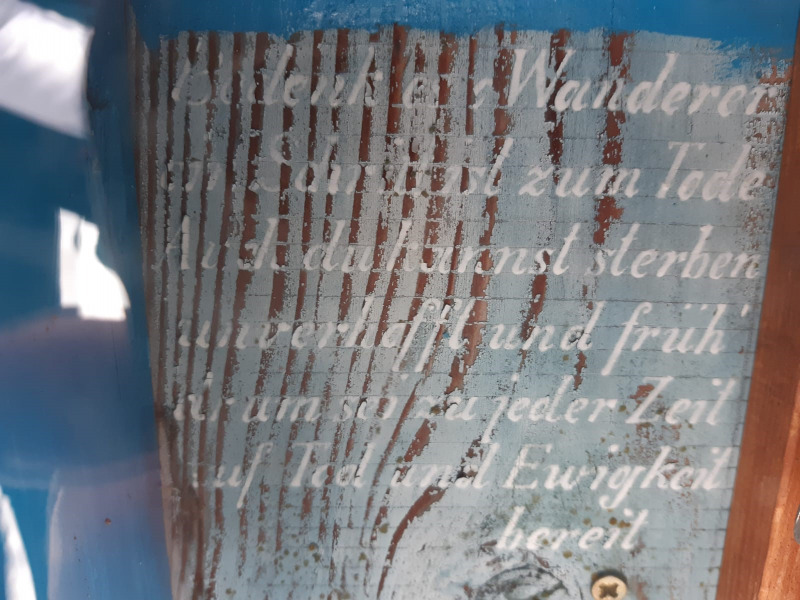 Bedenk es, Wanderer
ein Schritt ist zum Tode
Auch du kannst sterben
unverhofft und früh'
darum sei zu jeder Zeit
auf Tod und Ewigkeit
bereit